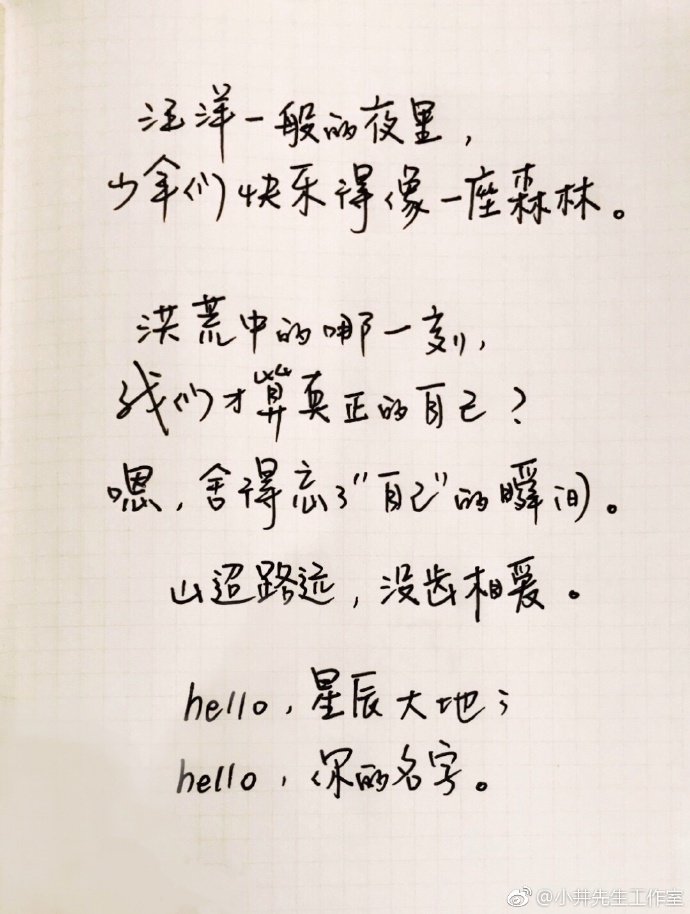 汪洋一般的夜里，
少年们快乐得像一座森林。
洪荒中的哪一刻，
我们才算真正的自己？
嗯，舍得忘了“自己”的瞬间。
山迢路远，没齿相爱。
hello，星辰大地；
hello，你的名字。
@小井先生工作室